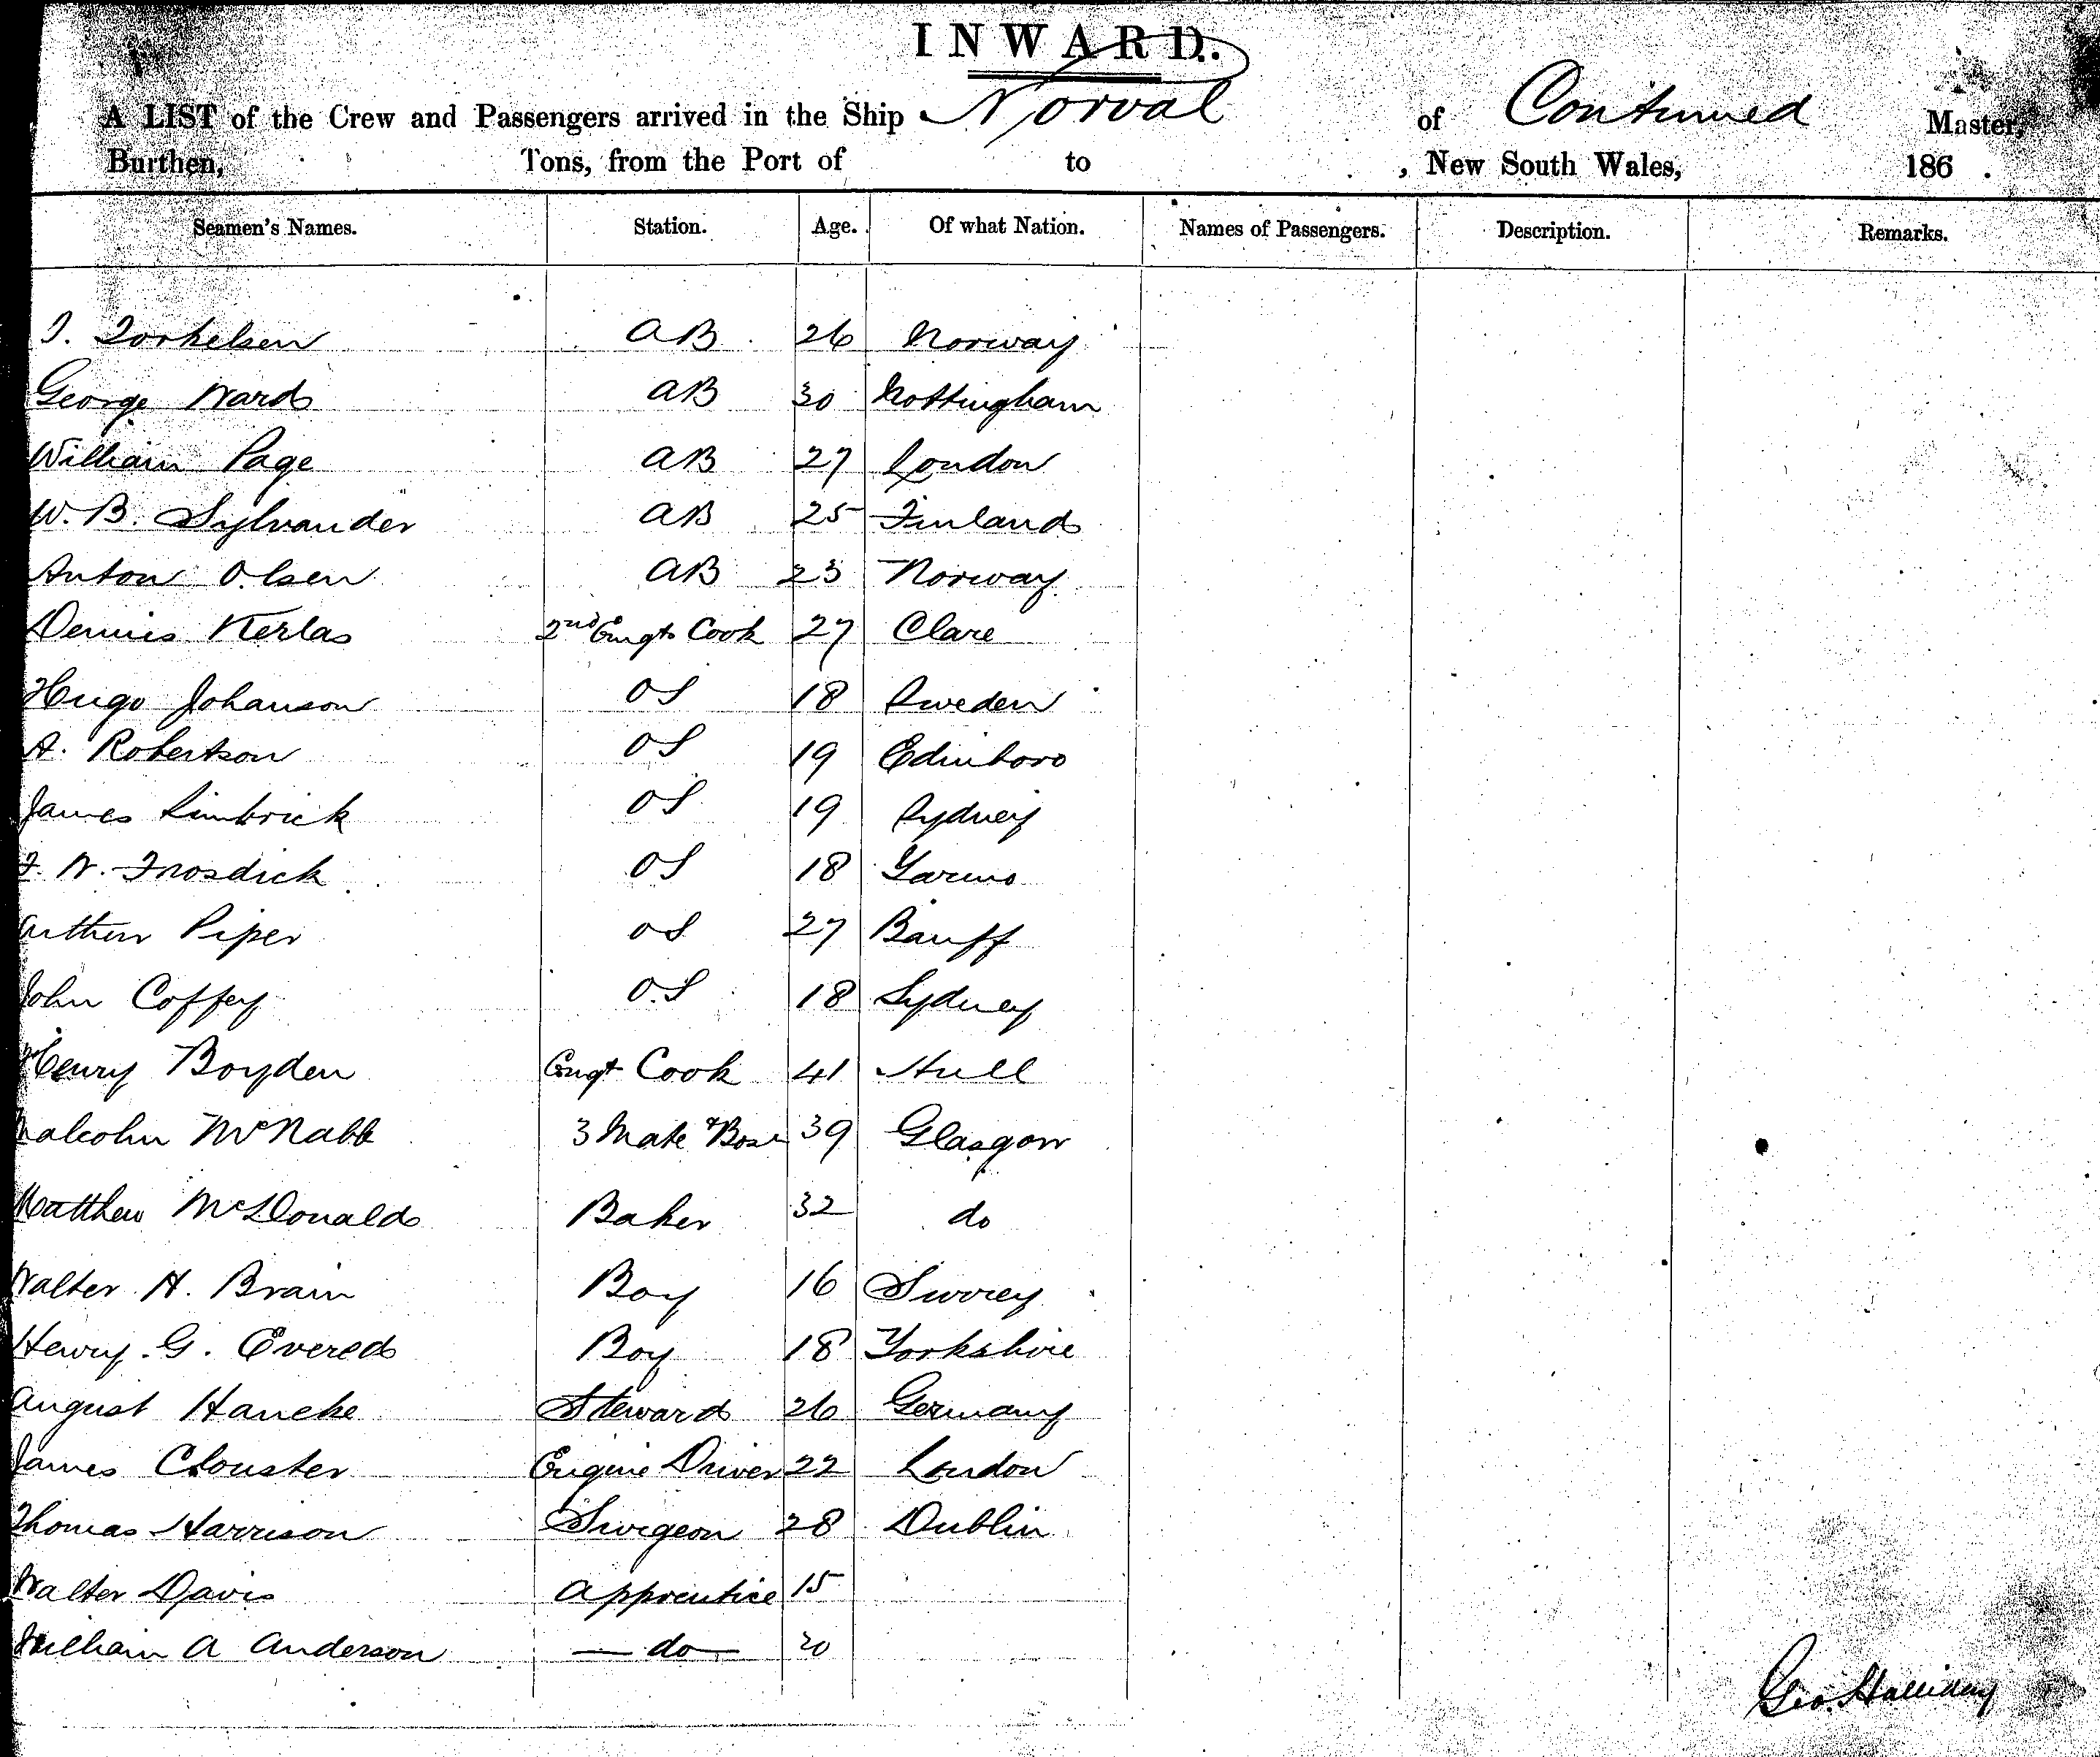 INWARD.
A LIST of the Crew and Passengers arrived in the Ship Norval of Continued Master,
Burthen, Tons, from the Port of to , New South Wales, 186 .
Seamen's Names. Station. Age. Of what Nation. Names of Passengers. Description. Remarks.
T. Torkelsen AB 26 Norway
George Ward AB 30 Nottingham
William Page AB 27 London
W. B. Sylvander AB 25 Finland
Anton Olsen AB 23 Norway
Dennis 2nd Cook 27 Clare
Hugo Johanson OS 18 Sweden
A. Robertson OS 19 Edinboro
James Limbrick OS 19 Sydney
F. W. Frosdick OS 18 Yarmo
Arthur Piper OS 27 Banff
John Coffey O.S 18 Sydney
Henry Boyden Cook 41 Hull
Malcolm McNabb 3 Mate & Bosn 39 Glasgow
Matthew McDonald Baker 32 do
Walter H. Brain Boy 16 Surrey
Henry G. Evered Boy 18 Yorkshire
August Hancke Steward 26 Germany
James Clouster Engine Driver 22 London
Thomas Harrison Surgeon 28 Dublin
Walter Davis Apprentice 15
William A Anderson — do — 20
Geo. Halliday